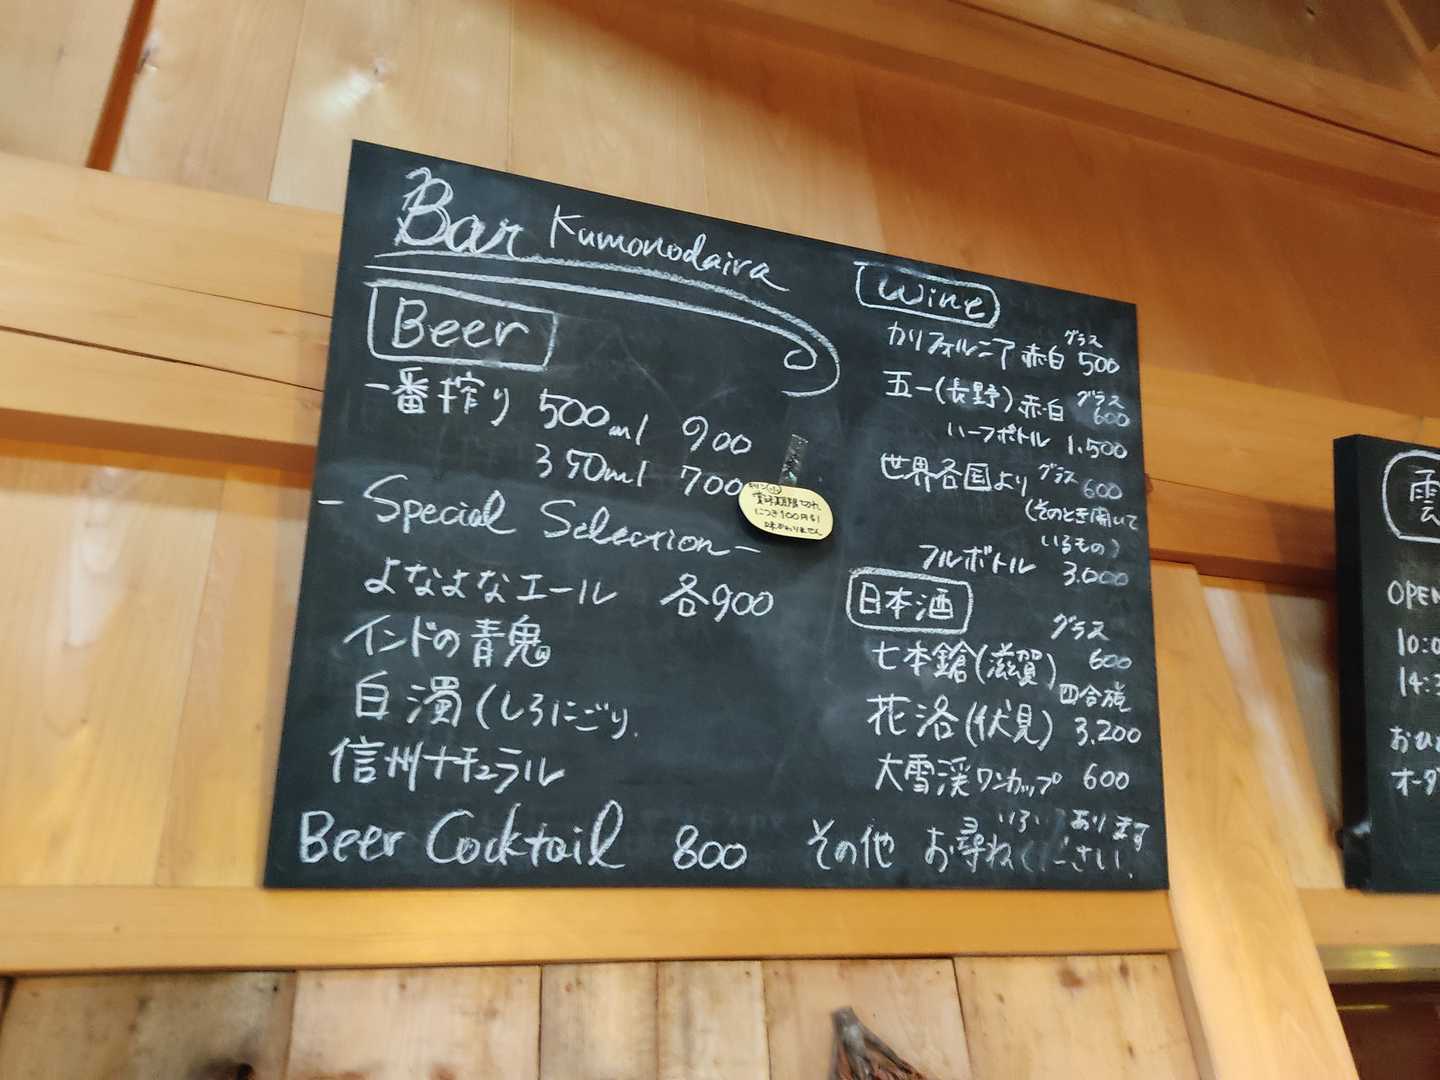 Bar Kumonodaira
Beer
一番搾り 500ml 900
350ml 700
キリン
賞味期限切れ
につき100円引
味かわりません
- Special Selection -
よなよなエール 各900
インドの青鬼
白濁(しろにごり)
信州ナチュラル
Beer Cocktail 800
Wine
カリフォルニア 赤白 グラス 500
五一(長野) 赤白 グラス 600
ハーフボトル 1,500
世界各国より グラス 600
(そのとき開いて
いるもの)
フルボトル 3,000
日本酒
グラス
七本鎗(滋賀) 600
四合瓶
花洛(伏見) 3,200
大雪渓ワンカップ 600
その他 あります
お尋ねください!
雲
OPEN
10:0
14:3
おひ
オーダ